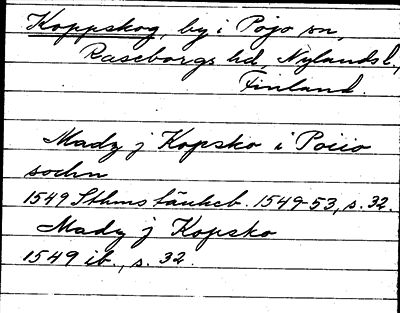 Koppskog, by i Pojo sn,
Raseborgs hd, Nylands l.,
Finland.
Mady j Kopsko i Poiio
sochn
1549 Sthms tänkeb. 1549-53, s. 32.
Mady j Kopsko
1549 ib., s. 32.